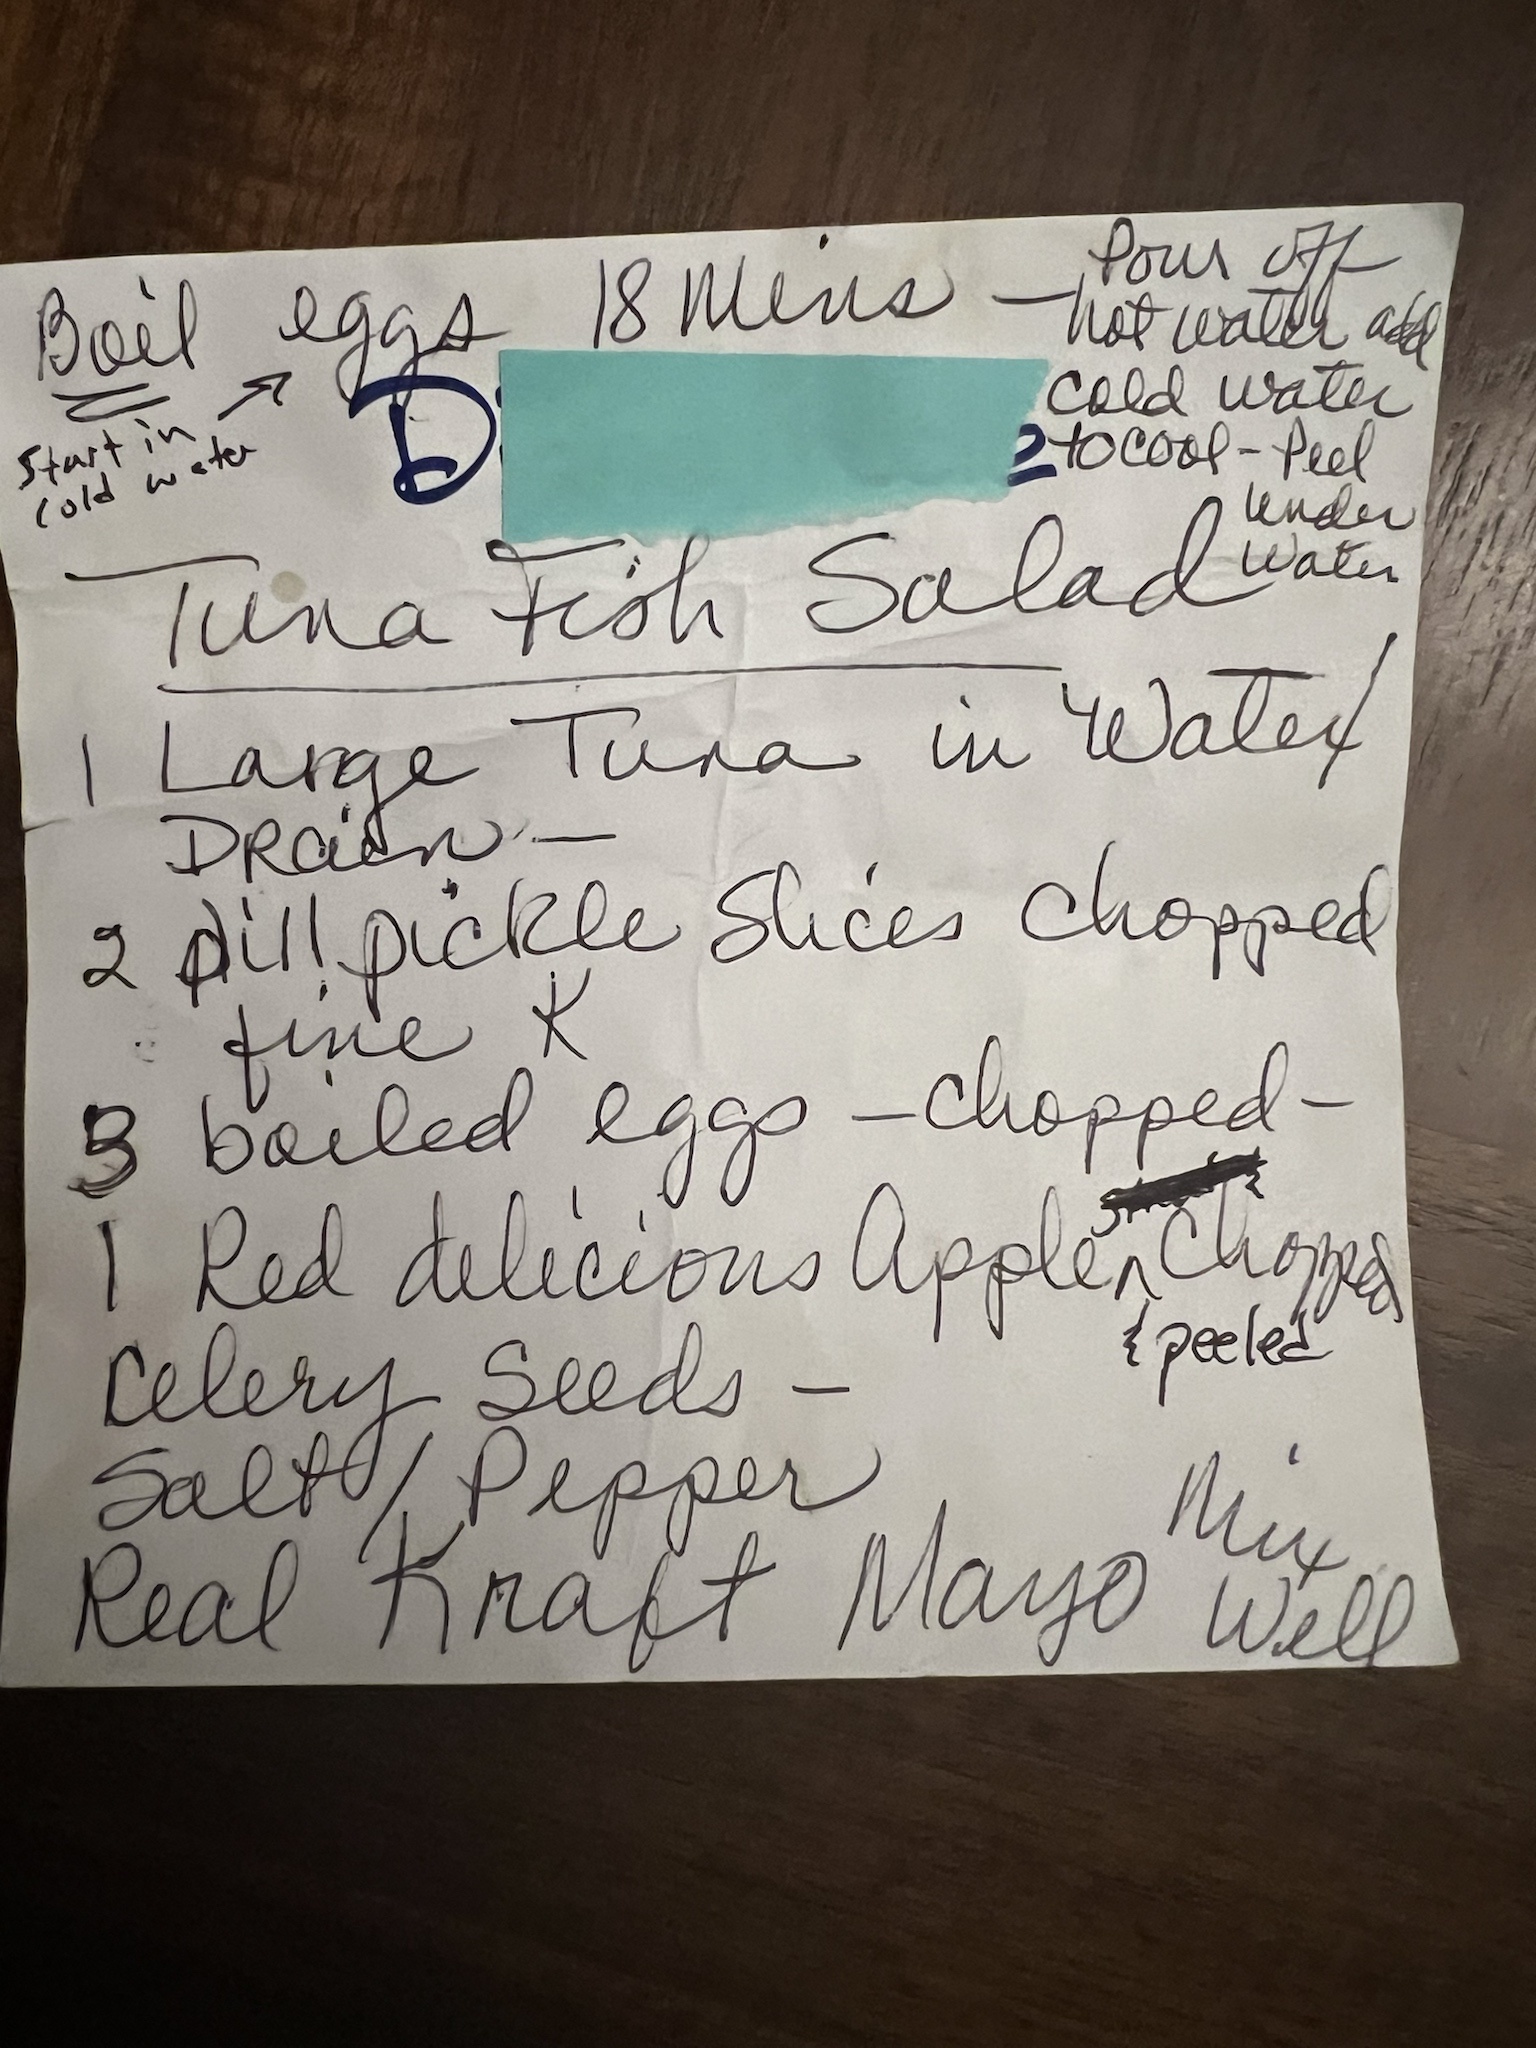 Boil eggs 18 Mins – Pour off
hot water add
cold water
to cool – Peel
under
water
start in
cold water
Tuna Fish Salad
1 Large Tuna in Water/
Drain –
2 dill pickle slices chopped
fine K
3 boiled eggs – chopped –
1 Red delicious Apple ^ Chopped
& peeled
Celery Seeds –
Salt / Pepper
Real Kraft Mayo
Mix
Well